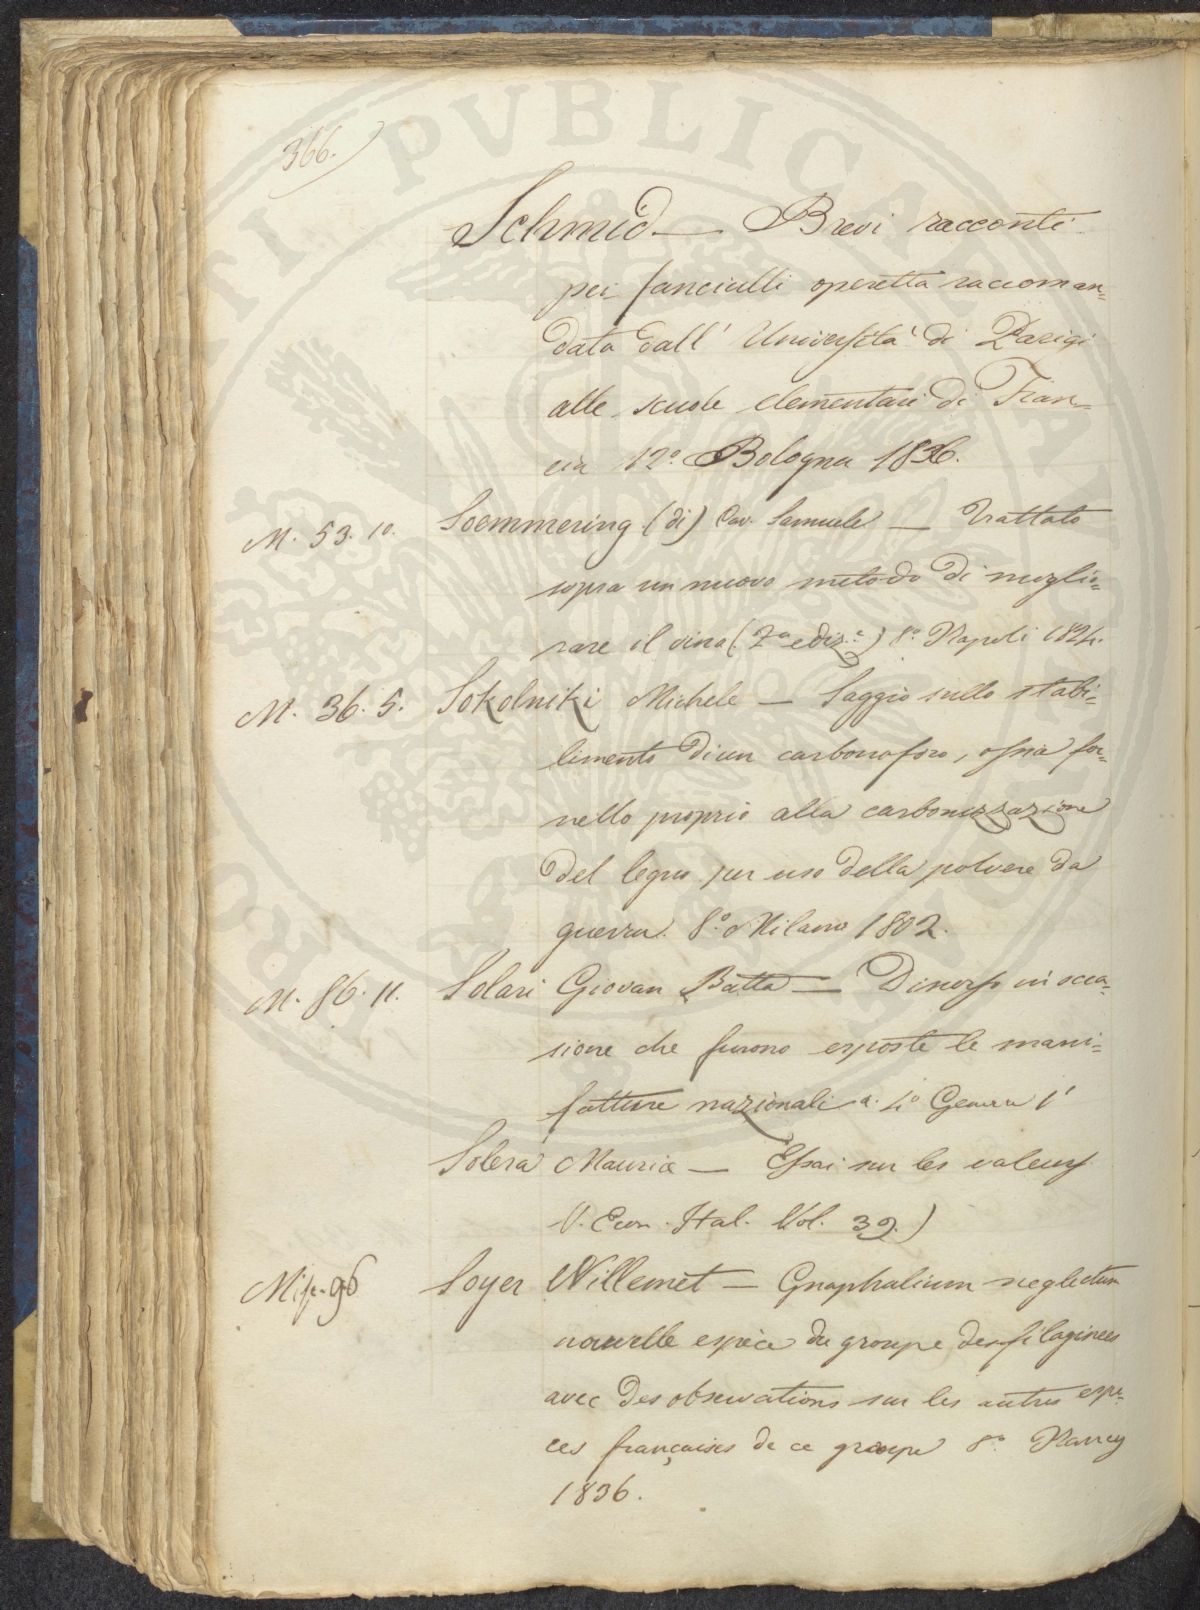 366.
Schmid — Brevi racconti
pei fanciulli operetta raccoman=
data dall' Università di Parigi
alle scuole elementari di Fran=
cia 12.º Bologna 1836.
M. 53. 10. Soemmering (di) Cav. Samuele — Trattato
sopra un nuovo metodo di meglio=
rare il vino (2ª ediz.e) 8.º Napoli 1824.
M. 36. 5. Sokolniki Michele — Saggio sullo stabi=
limento di un carbonoforo, ossia for=
nello proprio alla carbonizzazione
del legno per uso della polvere da
guerra. 8.º Milano 1802.
M. 86. 11. Solari Giovan Batta — Discorso in occa=
sione che furono esposte le mani=
fatture nazionali a. 4.º Genova
Solera Maurice — Essai sur les valeurs
V. Econ. Ital. Vol. 39.)
Mise. 96 Soyer Willemet — Gnaphalium neglectum
nouvelle espèce du groupe des filaginees
avec des observations sur les autres espe=
ces françaises de ce groupe 8.º Nancy
1836.
PVBLICAE